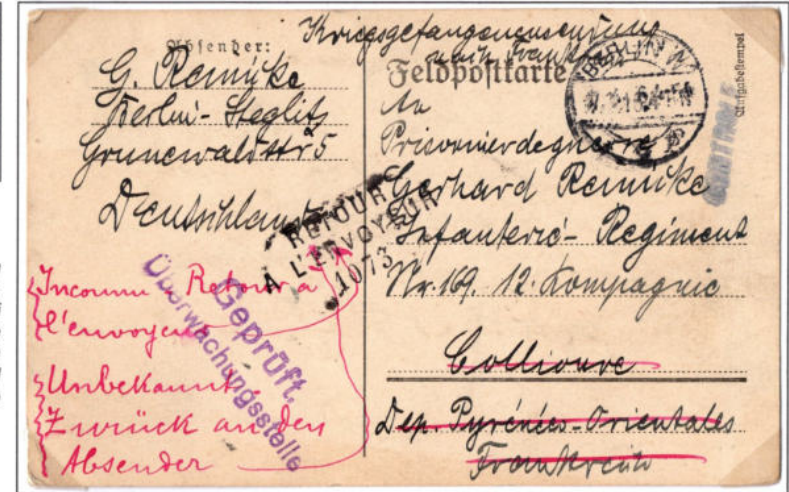 Absender:
G. Reinicke
Berlin-Steglitz
Grunewaldstr 5
Deutschland
Kriegsgefangenensendung
nach Frankreich
Feldpostkarte
BERLIN
Aufgabestempel
An
Prisonnier de guerre
Gerhard Reinicke
Infanterie-Regiment
Nr. 169. 12. Kompagnie
Collioure
Dep. Pyrénées-Orientales
Frankreich
RETOUR
A L'ENVOYEUR
1073
Geprüft
Überwachungsstelle
Inconnu Retour a
l'envoyeur
Unbekannt
Zurück an den
Absender